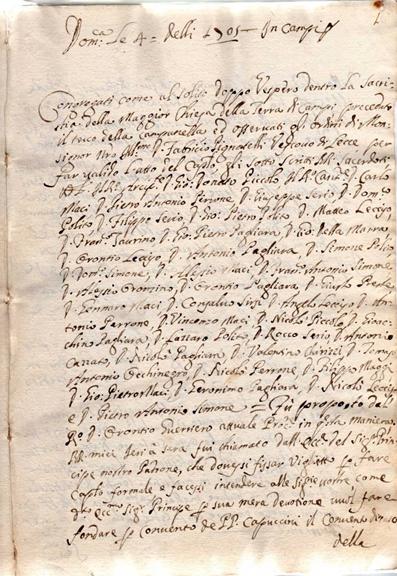 1
Dom.ca Le 4 = delli 1705 - In Campi
Congregati come al solito doppo Vespero dentro La Sacri-
stia della Maggior Chiesa della Terra di Campi preceduto
il tocco della Campanella ed osservati gl'ordini di Mon-
signor D. Fabritio Pignatelli Vescovo di Lecce per
far valido l'atto del Cap.lo gl' sotto Scritti Sacerdoti
D. Donato Piccolo D. Carlo
Maci D. Pietro Antonio Perrone, D. Giuseppe Serio D. Dom.co
Polito D. Filippo Serio D. Gio: Pietro D. Matteo Leccijo
D. Fran.co Taurino D. Gio: Pietro Pagliara D. Gio: della Marra,
D. Orontio Leccijo, D. Antonio Pagliara D. Simone Polito
D. Dom.co Simone, D. Alessio Maci D. Fran.co Antonio Simone
D. Alessio D. Orontio Pagliara, D. Giulio
D. Gennaro Maci D. Consalvo Sirsi D. Angelo Leccijo D. An-
tonio Perrone, D. Vincenzo Maci D. Nicolò Piccolo, D. Gioac-
chino Pagliara, D. Lazzaro Polito, D. Rocco Serio D. Antonio
D. Nicolò Pagliara D. Valentino D. Tomaso
Antonio D. Nicolò Perrone D. Filippo Maggi
D. Gio: Pietro Maci, D. Geronimo Pagliara D. Nicolò Leccijo
e D. Pietro Antonio Simone = Fù proposto dal
R.do D. Orontio Guerriero attuale Proc.re in questa maniera
miei Jeri à sera fui chiamato dall' Ecc.te del Sig.r Prin-
cipe nostro Padrone, che dovessi fissar Viglietto p. fare
Cap.lo formale e facessi intendere alle Sig.rie vostre come
Ecc.mo Sig.r Principe p. sua mera devotione vuol fare
fondare p. Convento de PP. Capuccini il Convento
della